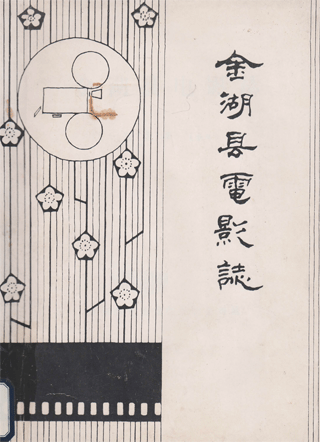 金湖县電影誌